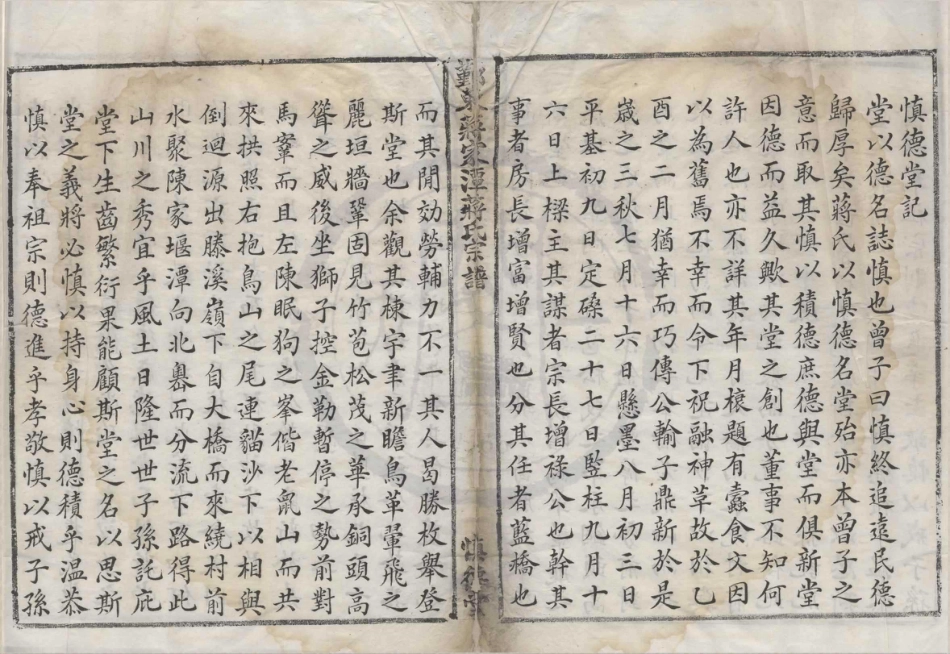 慎德堂記
堂以德名誌慎也曾子曰慎終追遠民德
歸厚矣蔣氏以慎德名堂殆亦本曾子之
意而取其慎以積德庶德與堂而俱新堂
因德而益久歟其堂之創也董事不知何
許人也亦不詳其年月榱題有蠹食文因
以為舊焉不幸而令下祝融神草故於乙
酉之二月猶幸而巧傳公輸子鼎新於是
歲之三秋七月十六日懸墨八月初三日
平基初九日定磉二十七日豎柱九月十
六日上樑主其謀者宗長增祿公也幹其
事者房長增富增賢也分其任者藍橋也
鄞東蔣家潭蔣氏宗譜
慎德堂
而其閒効勞輔力不一其人曷勝枚舉登
斯堂也余觀其棟宇聿新瞻鳥革翬飛之
麗垣牆鞏固見竹苞松茂之華承銅頭高
聳之威後坐獅子控金勒暫停之勢前對
馬鞌而且左陳眠狗之峯偕老鼠山而共
來拱照右抱烏山之尾連貓沙下以相與
倒迴源出滕溪嶺下自大橋而來繞村前
水聚陳家堰潭向北嶴而分流下路得此
山川之秀宜乎風土日隆世世子孫託庇
堂下生齒繁衍果能顧斯堂之名以思斯
堂之義將必慎以持身心則德積乎温恭
慎以奉祖宗則德進乎孝敬慎以戒子孫